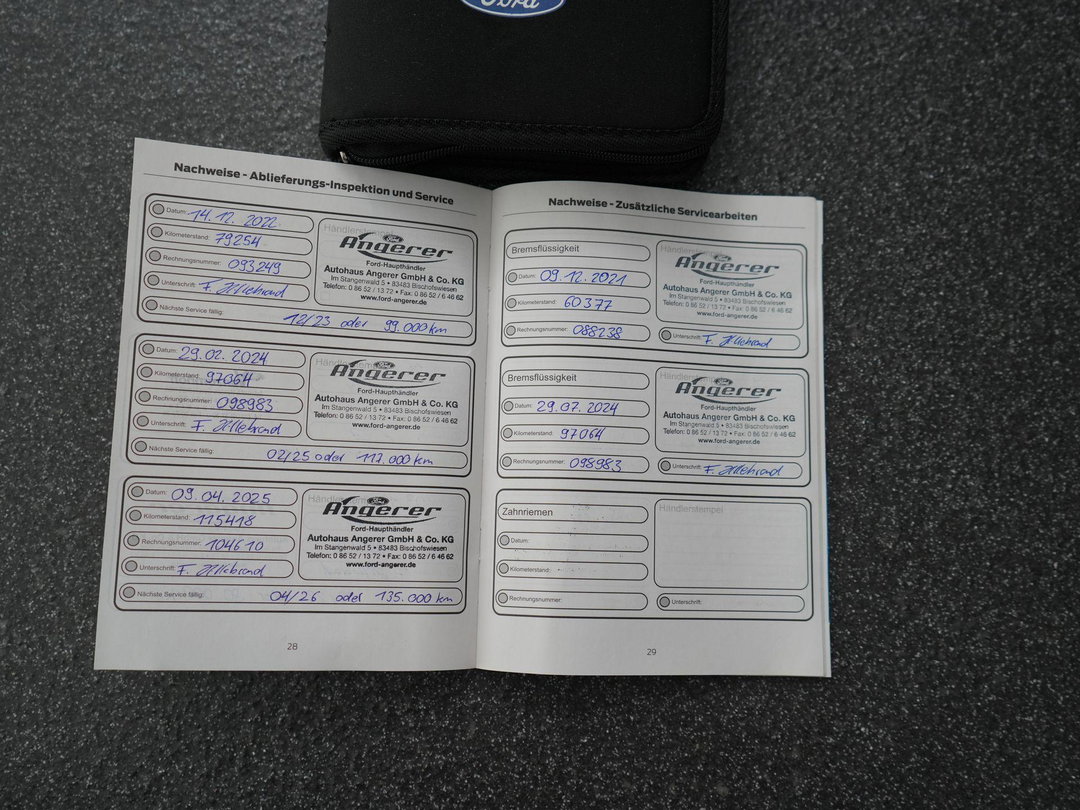 Ford
Nachweise - Ablieferungs-Inspektion und Service
Datum: 14.12.2022
Kilometerstand: 79254
Rechnungsnummer: 093249
Unterschrift: F. Hillebrand
Nächste Service fällig: 12/23 oder 99.000 km
Händlerstempel
Ford
Angerer
Ford-Haupthändler
Autohaus Angerer GmbH & Co. KG
Im Stangenwald 5 • 83483 Bischofswiesen
Telefon: 0 86 52 / 13 72 • Fax: 0 86 52 / 6 46 62
www.ford-angerer.de
Datum: 29.02.2024
Kilometerstand: 97064
Rechnungsnummer: 098983
Unterschrift: F. Hillebrand
Nächste Service fällig: 02/25 oder 117.000 km
Händlerstempel
Ford
Angerer
Ford-Haupthändler
Autohaus Angerer GmbH & Co. KG
Im Stangenwald 5 • 83483 Bischofswiesen
Telefon: 0 86 52 / 13 72 • Fax: 0 86 52 / 6 46 62
www.ford-angerer.de
Datum: 09.04.2025
Kilometerstand: 115418
Rechnungsnummer: 104610
Unterschrift: F. Hillebrand
Nächste Service fällig: 04/26 oder 135.000 km
Händlerstempel
Ford
Angerer
Ford-Haupthändler
Autohaus Angerer GmbH & Co. KG
Im Stangenwald 5 • 83483 Bischofswiesen
Telefon: 0 86 52 / 13 72 • Fax: 0 86 52 / 6 46 62
www.ford-angerer.de
28
Nachweise - Zusätzliche Servicearbeiten
Bremsflüssigkeit
Datum: 09.12.2021
Kilometerstand: 60377
Rechnungsnummer: 088238
Händlerstempel
Ford
Angerer
Ford-Haupthändler
Autohaus Angerer GmbH & Co. KG
Im Stangenwald 5 • 83483 Bischofswiesen
Telefon: 0 86 52 / 13 72 • Fax: 0 86 52 / 6 46 62
www.ford-angerer.de
Unterschrift: F. Hillebrand
Bremsflüssigkeit
Datum: 29.07.2024
Kilometerstand: 97064
Rechnungsnummer: 098983
Händlerstempel
Ford
Angerer
Ford-Haupthändler
Autohaus Angerer GmbH & Co. KG
Im Stangenwald 5 • 83483 Bischofswiesen
Telefon: 0 86 52 / 13 72 • Fax: 0 86 52 / 6 46 62
www.ford-angerer.de
Unterschrift: F. Hillebrand
Zahnriemen
Datum:
Kilometerstand:
Rechnungsnummer:
Händlerstempel
Unterschrift:
29